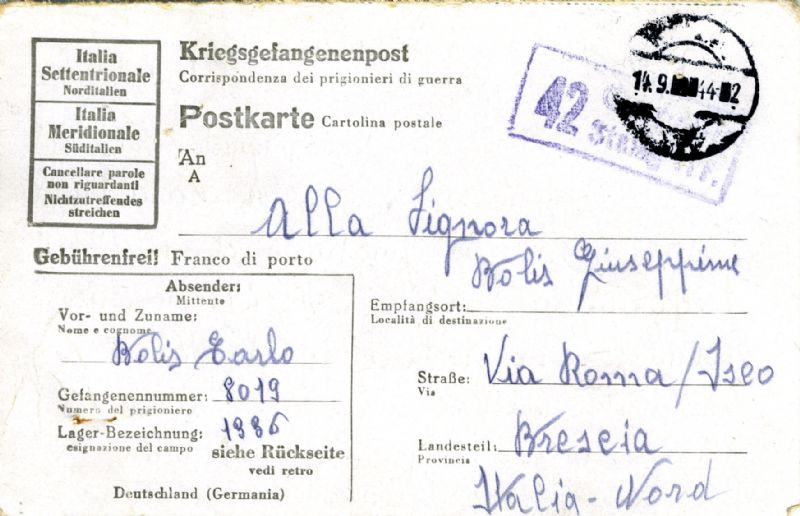 Italia
Settentrionale
Norditalien
Italia
Meridionale
Süditalien
Cancellare parole
non riguardanti
Nichtzutreffendes
streichen
Kriegsgefangenenpost
Corrispondenza dei prigionieri di guerra
Postkarte Cartolina postale
14.9.44-2
42
An
A
Alla Signora
Bolis Giuseppina
Gebührenfrei! Franco di porto
Absender:
Mittente
Vor- und Zuname:
Nome e cognome
Bolis Carlo
Gefangenennummer: 8019
Numero del prigioniero
Lager-Bezeichnung: 1386
esignazione del campo
siehe Rückseite
vedi retro
Deutschland (Germania)
Empfangsort:
Località di destinazione
Straße: Via Roma / Iseo
Via
Landesteil: Brescia
Provincia
Italia - Nord